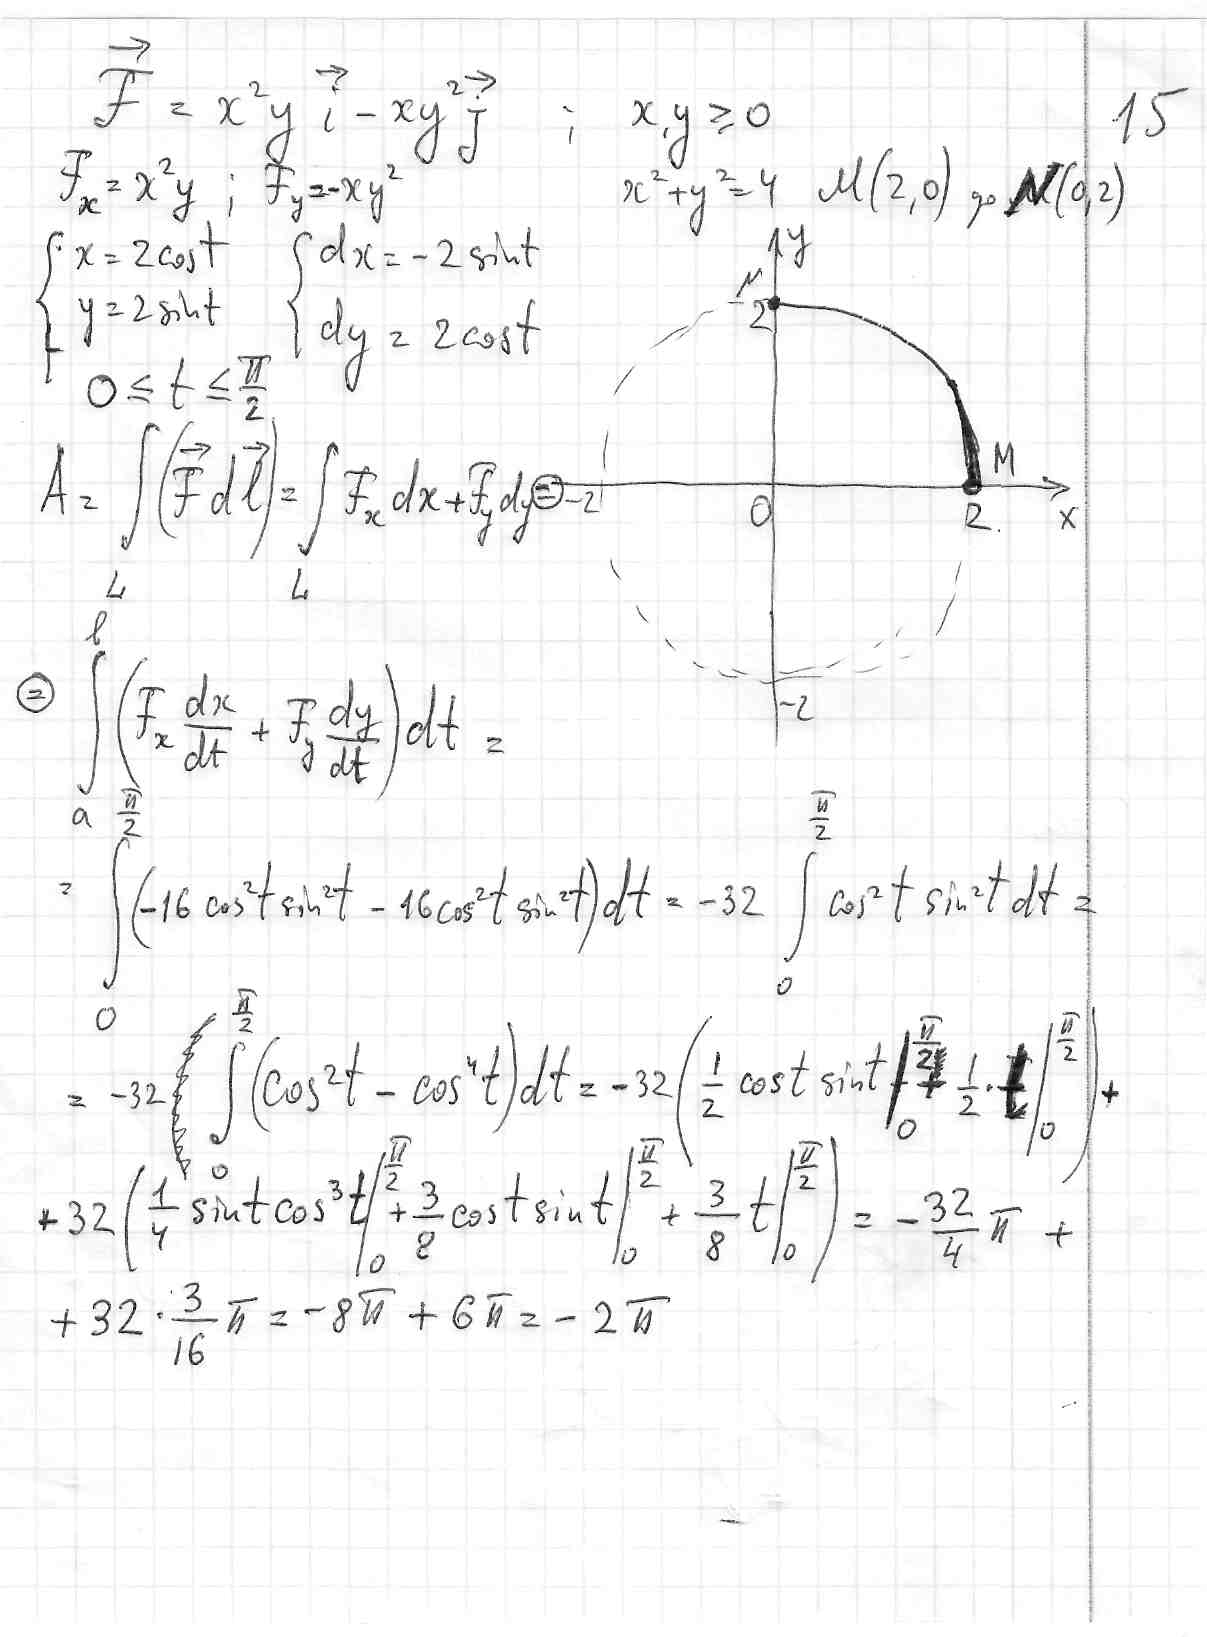 F⃗ = x²y i⃗ - xy² j⃗ ; x,y ≥ 0 15
Fx = x²y ; Fy = -xy² x² + y² = 4 M(2,0) до N(0,2)
{ x = 2cost { dx = -2 sint
y = 2sint dy = 2cost
0 ≤ t ≤ π/2
y
N
2
M
-2 0 2 x
-2
A = ∫_L (F⃗ dl⃗) = ∫_L Fx dx + Fy dy =
= ∫_a^b (Fx dx/dt + Fy dy/dt) dt =
= ∫_0^{π/2} (-16 cos²t sin²t - 16cos²t sin²t) dt = -32 ∫_0^{π/2} cos²t sin²t dt =
= -32 ∫_0^{π/2} (cos²t - cos⁴t) dt = -32 (1/2 cost sint |_0^{π/2} + 1/2 · t |_0^{π/2}) +
+32 (1/4 sint cos³t |_0^{π/2} + 3/8 cost sint |_0^{π/2} + 3/8 t |_0^{π/2}) = -32/4 π +
+ 32 · 3/16 π = -8π + 6π = -2π